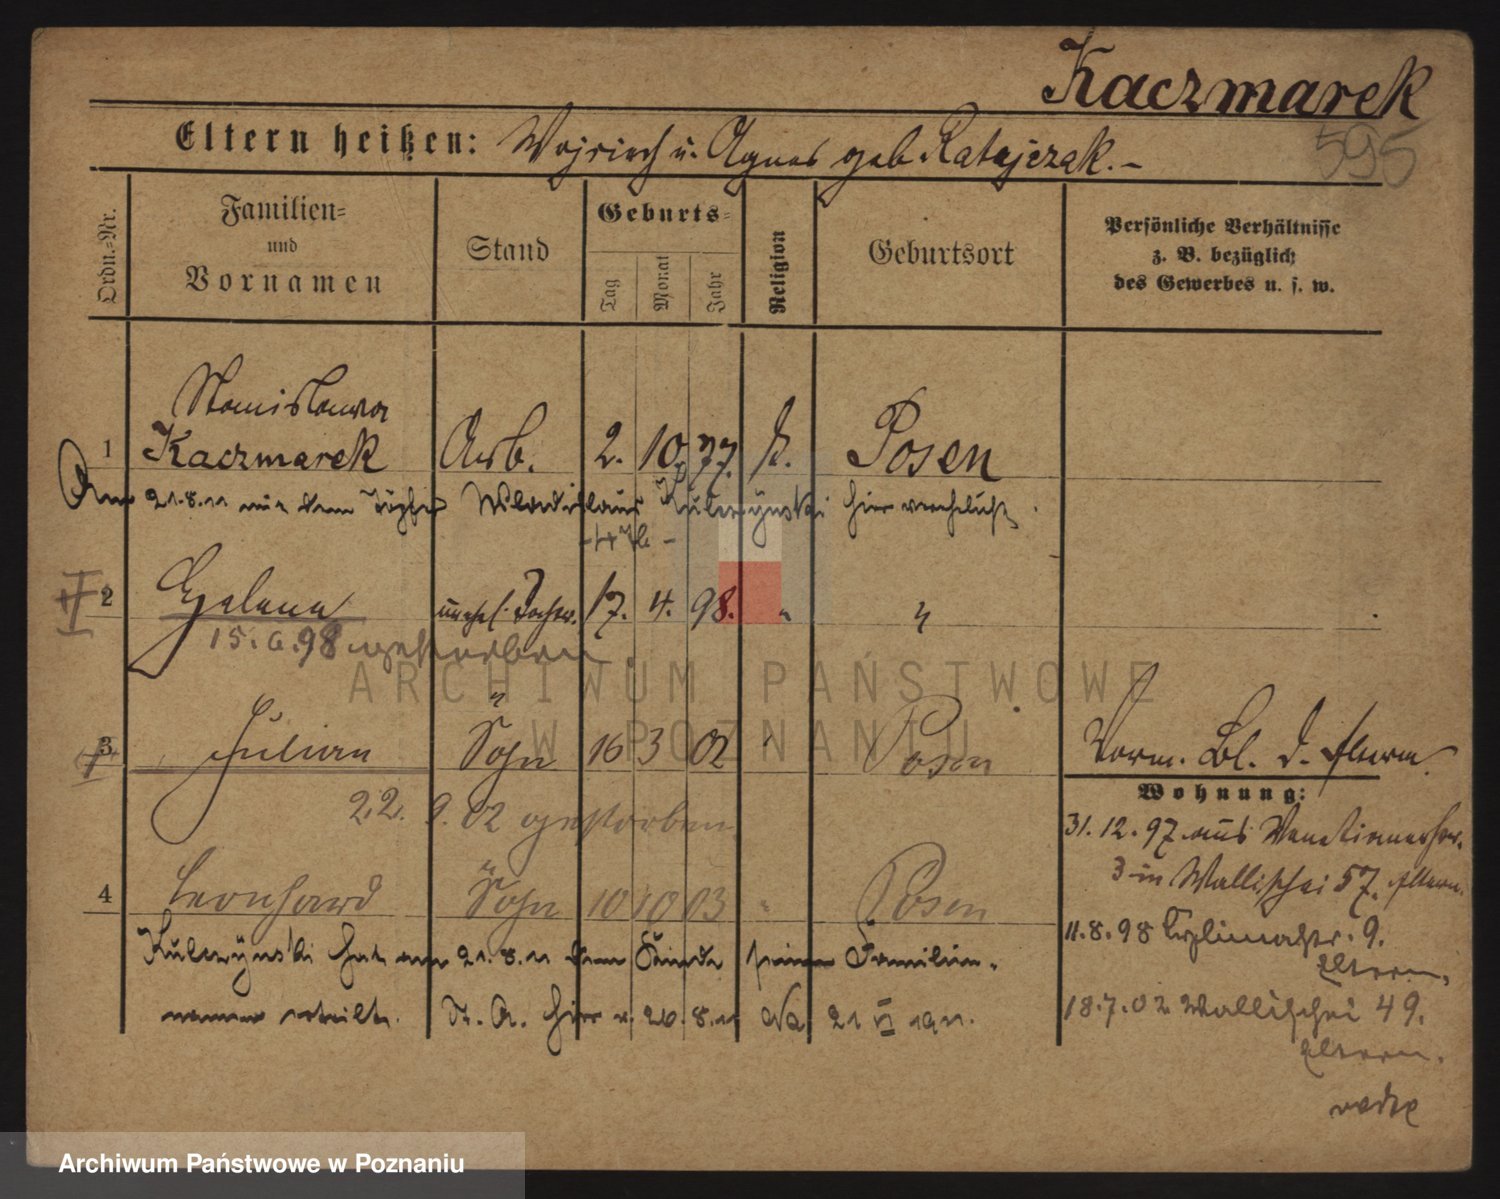 Kaczmarek
595
Eltern heißen: Wojciech u. Agnes geb Ratajczak.-
Ordn.-Nr.
Familien- und Vornamen
Stand
Geburts-
Tag Monat Jahr
Religion
Geburtsort
Persönliche Verhältnisse
z. B. bezüglich
des Gewerbes u. s. w.
Stanislawa
1 Kaczmarek Arb. 2. 10. 77. k. Posen
Am 21.8.11 mit dem Töpfer Wladislaus Kulczynski hier verehelicht.
2 Helena unehel. Tochter. 17. 4. 98. " "
15.6.98 gestorben
3 Julian " Sohn 16 3 02 " Posen
Vorm. Bl. d. Eltern.
22. 9. 02 gestorben
Wohnung:
31. 12. 97 aus Venetianerstr.
3 in Wallischei 57. Eltern.
4 Leonhard " Sohn 10 10 03 " Posen
11.8.98 9.
Eltern.
Kulczynski hat am 21.8.11 dem Kinde seinen Familien-
namen erteilt. St. A. hier v. 26.8.11 21 VI 1911.
18.7.02 Wallischei 49.
Eltern.
ARCHIWUM PAŃSTWOWE
W POZNANIU
Archiwum Państwowe w Poznaniu